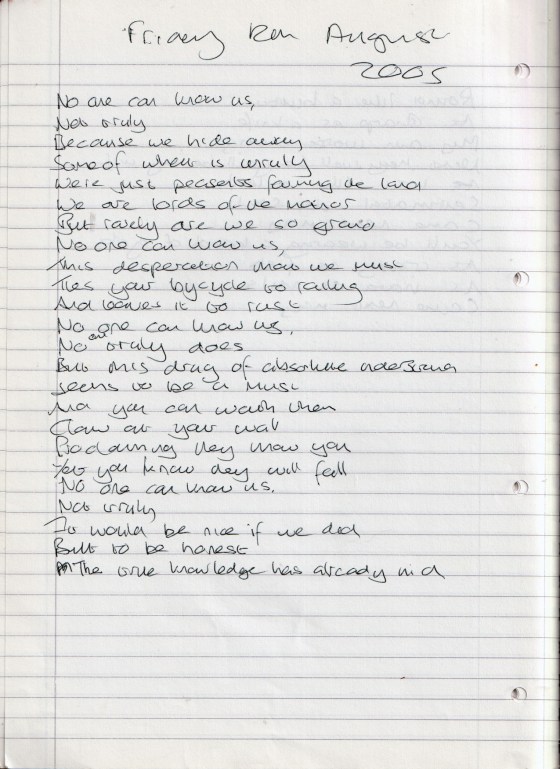 Friday August
2005
No one can know us,
Not truly
Because we hide away
Some of when is unruly
We're just peasents farming the land
We are lords of the manor
But rarely are we so grand
No one can know us,
This desperation that we must
Ties your bycycle to railing
And leaves it to rust
No one can know us,
No one truly does
But this drug of absolute understand
seems to be a must
And you can watch them
Claw at your wall
Proclaiming they know you
Yet you know they will fall
No one can know us.
Not truly
It would be nice if we did
But to be honest
The true knowledge has already